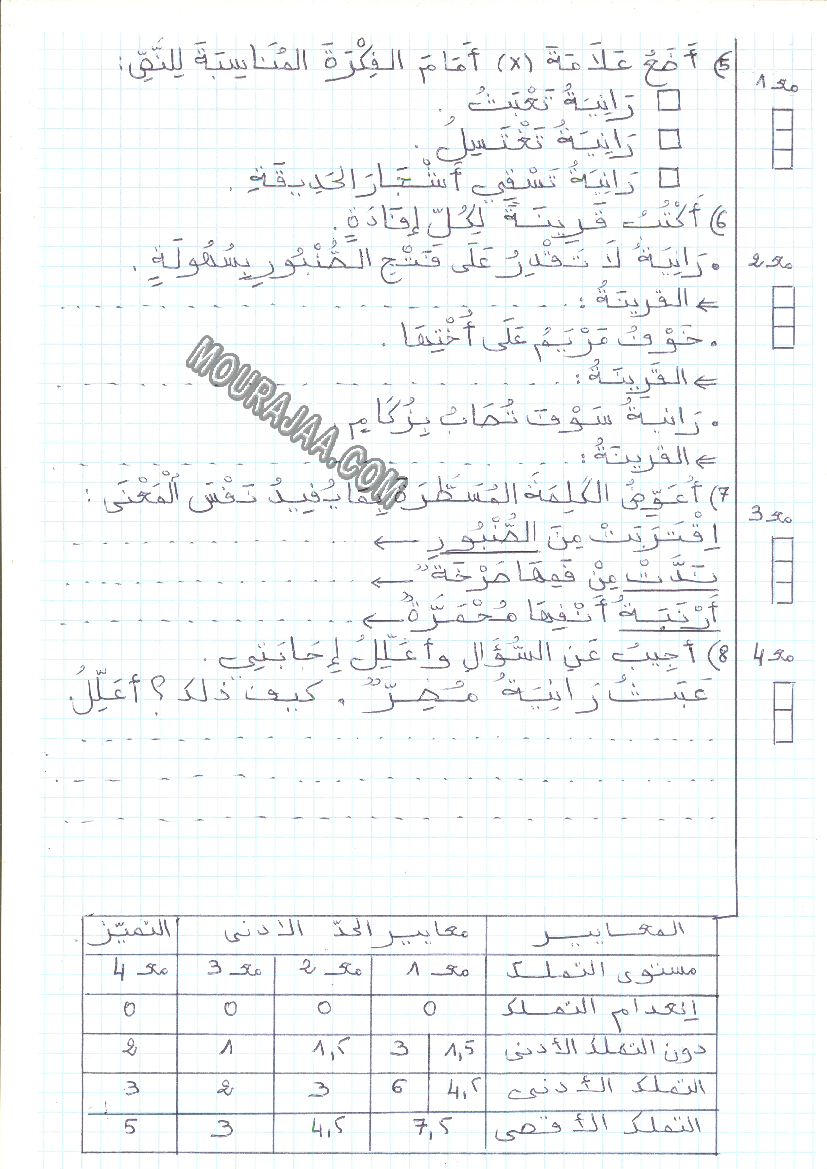 5) أَضَعُ عَلَامَةَ (x) أَمَامَ الفِكْرَةَ المُنَاسِبَةَ لِلنَّصِّ :
مع 1
□ رَانِيَةُ تَعْبَثُ .
□ رَانِيَةُ تَغْتَسِلُ .
□ رَانِيَةُ تَسْقِي أَشْجَارَ الحَدِيقَةِ .
6) أَكْتُبُ قَرِينَةً لِكُلِّ إِفَادَةٍ .
مع 2
• رَانِيَةُ لَا تَقْدِرُ عَلَى فَتْحِ الصُّنْبُورِ بِسُهُولَةٍ .
← القَرِينَةُ : . . . . . . . . . . . . . . . . . . . .
• خَوْفُ مَرْيَمُ عَلَى أُخْتِهَا .
← القَرِينَةُ : . . . . . . . . . . . . . . . . . . . .
• رَانِيَةُ سَوْفَ تُصَابُ بِزُكَامٍ
← القَرِينَةُ : . . . . . . . . . . . . . . . . . . . .
MOURAJAA.COM
7) أُعَوِّضُ الكَلِمَةَ المُسَطَّرَةَ بِمَا يُفِيدُ نَفْسَ اَلْمَعْنَى :
مع 3
اِقْتَرَبَتْ مِنَ الصُّنْبُورِ ← . . . . . . . . . . . . . . .
نَدَّتْ مِنْ فَمِهَا صَرْخَةٌ ← . . . . . . . . . . . . . . .
أَرْنَبَةُ أَنْفِهَا مُحْمَرَّةٌ ← . . . . . . . . . . . . . . .
8) أُجِيبُ عَنِ السُّؤَالِ وأُعَلِّلُ إِجَابَتِي .
مع 4
عَبَثُ رَانِيَةُ مُضِرٌّ . كيف ذلك ؟ أُعَلِّلُ .
. . . . . . . . . . . . . . . . . . . . . . . .
. . . . . . . . . . . . . . . . . . . . . . . .
. . . . . . . . . . . . . . . . . . . . . . . .
المعايير معايير الحدّ الادنى التميّز
مستوى التملك مع 1 مع 2 مع 3 مع 4
إنعدام التملك 0 0 0 0
دون التملك الأدنى 1,5 3 1,5 1 2
التملك الأدنى 4,5 6 3 2 3
التملك الأقصى 7,5 4,5 3 5